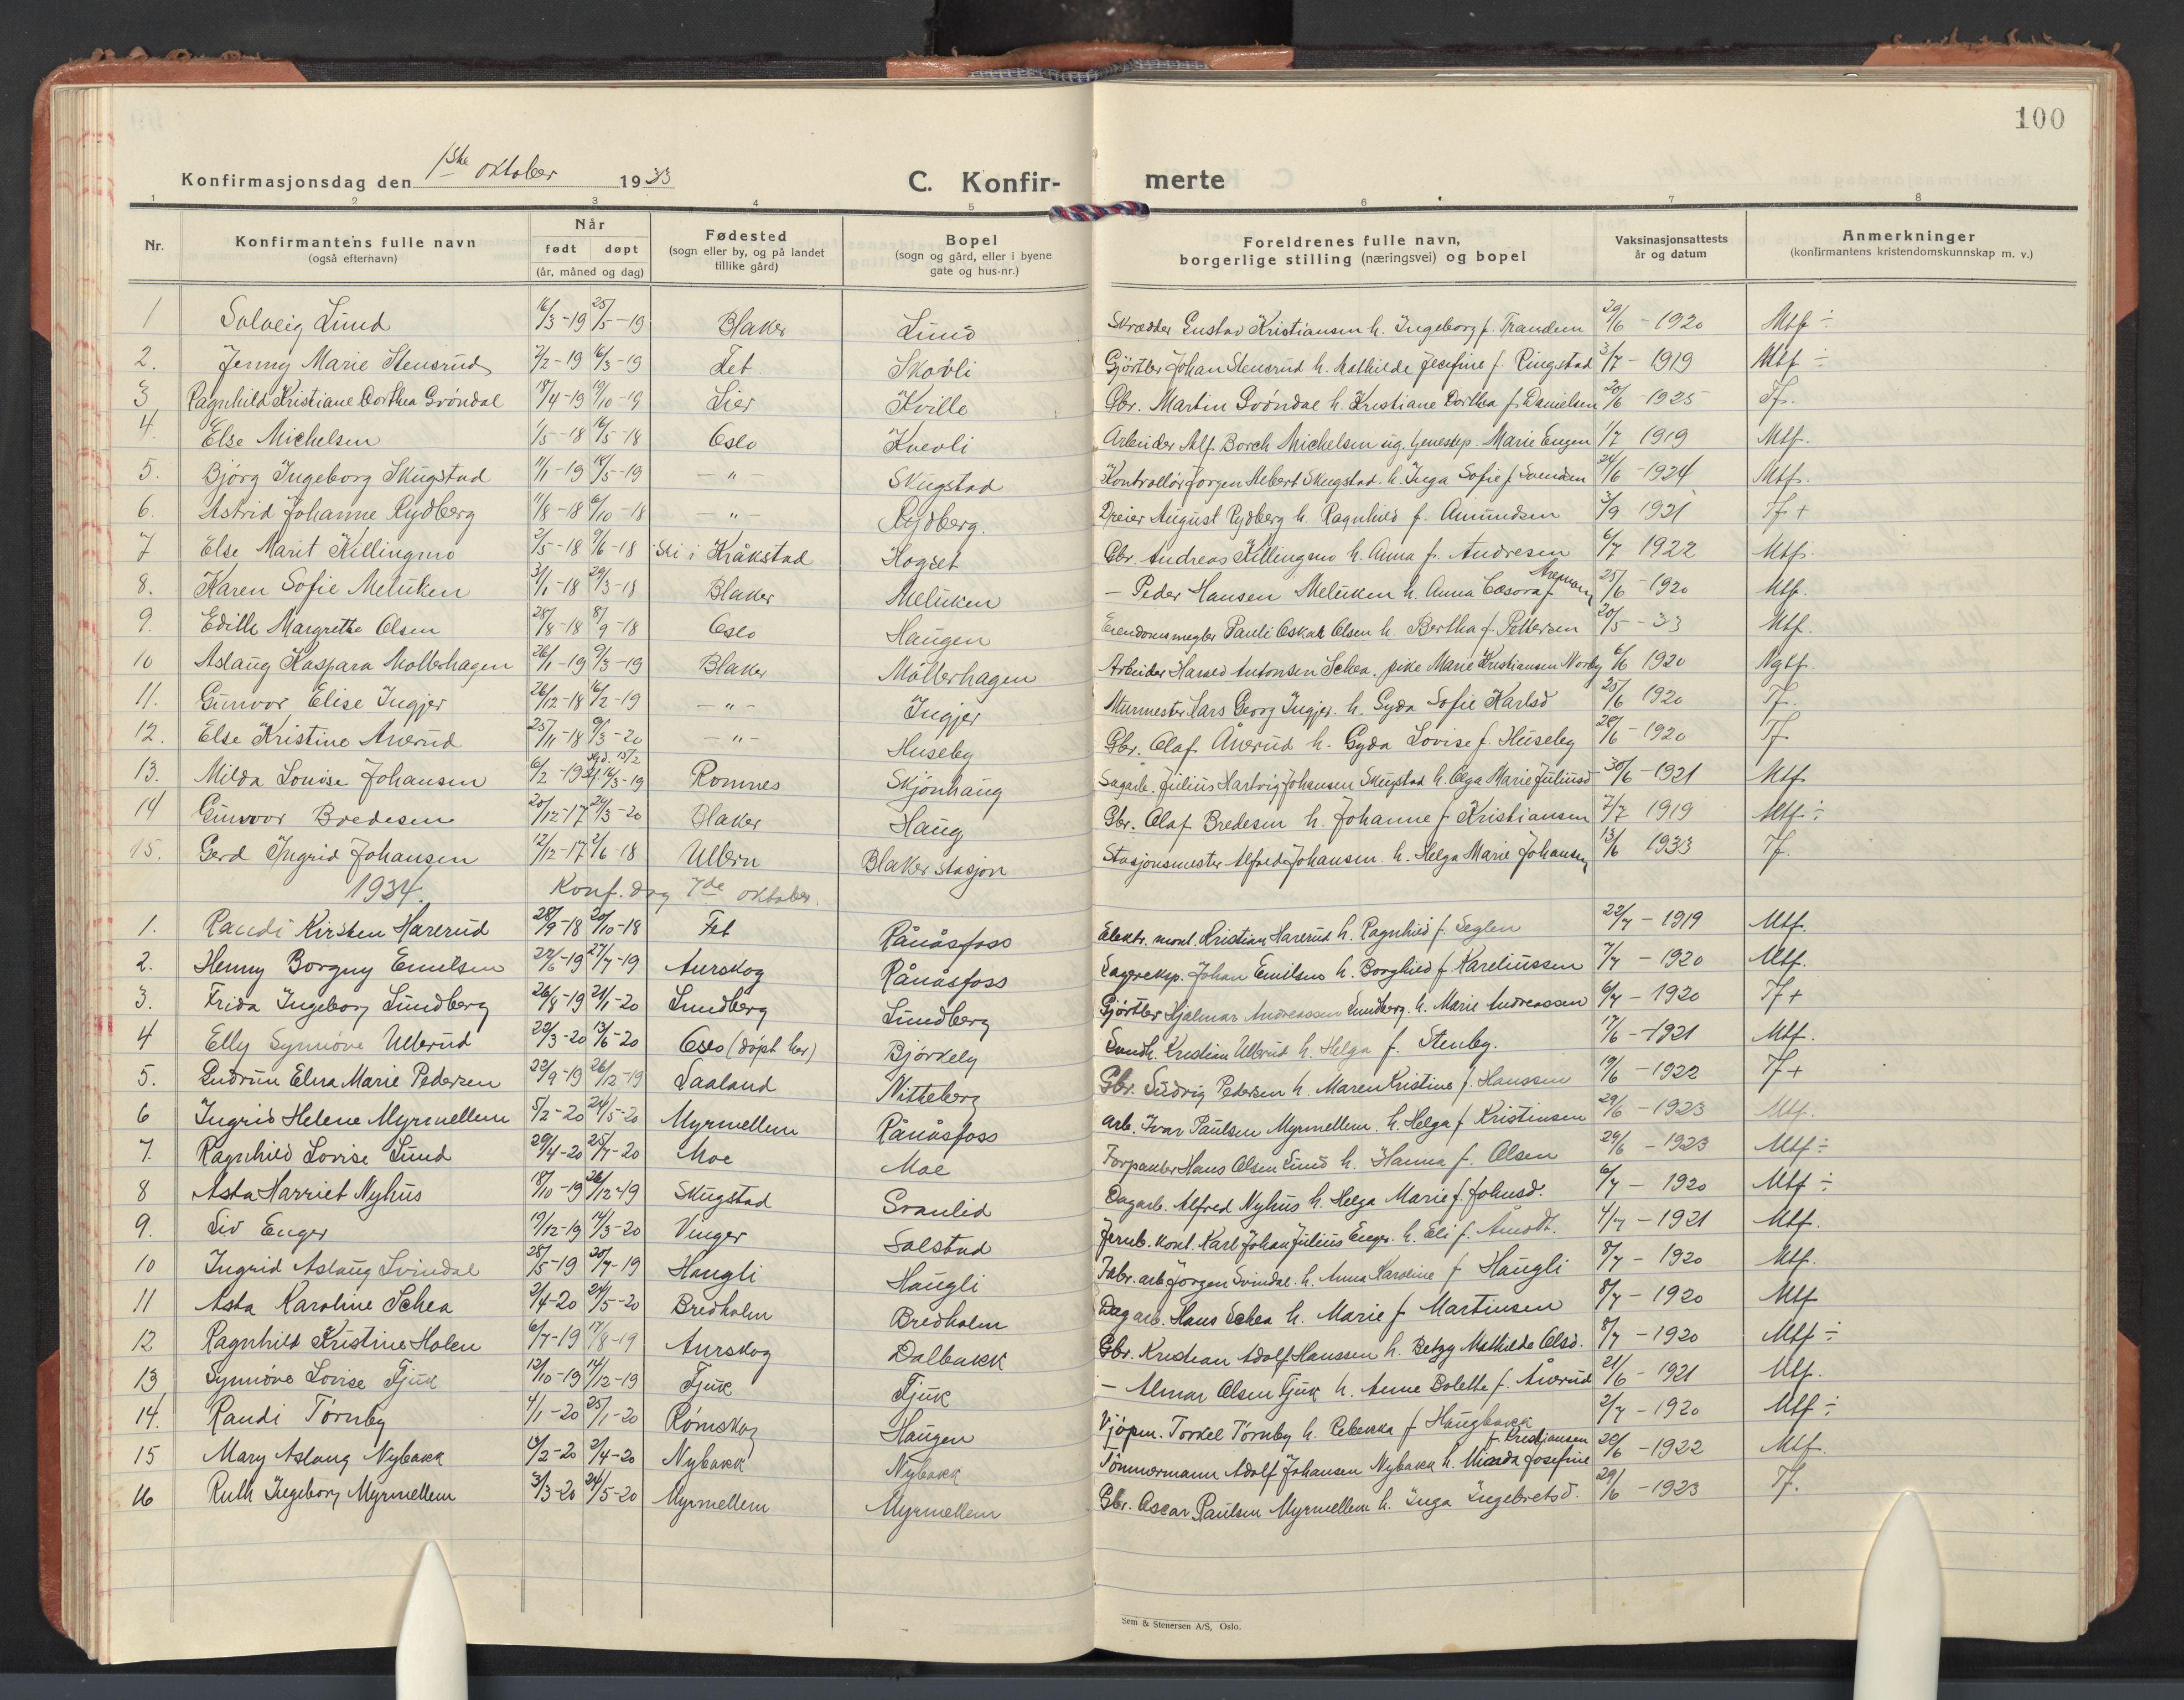 100
Konfirmasjonsdag den 1ste oktober 1933 C. Konfir- merte
1 2 3 4 5 6 7 8
Nr. Konfirmantens fulle navn (også efternavn) Når født døpt (år, måned og dag) Fødested (sogn eller by, og på landet tillike gård) Bopel (sogn og gård, eller i byene gate og hus-nr.) Foreldrenes fulle navn, borgerlige stilling (næringsvei) og bopel Vaksinasjonsattests år og datum Anmerkninger (konfirmantens kristendomskunnskap m. v.)
1 Solveig Lund 16/3-19 25/5-19 Blaker Lund Skrædder Gustav Kristiansen h. Ingeborg f. Trandem 29/6-1920 Mtf ÷
2. Jenny Marie Stensrud 7/2-19 16/3-19 Fet Skovli Gjörtler Johan Stensrud h. Mathilde Josefine f. Ringstad 3/7-1919 Mtf ÷
3 Ragnhild Kristiane Dorthea Gröndal 18/4-19 19/10-19 Lier Kville Gbr. Martin Gröndal h. Kristiane Dorthea f. Danielsen 20/6-1925 Tf.
4. Else Michelsen 1/5-18 16/5-18 Oslo Kvevli Arbeider Alf Borch Michelsen ug. Marie Engen 1/7 1919 Mtf.
5. Bjørg Ingeborg Skugstad 11/1-19 18/5-19 -"- Skugstad Kontrollör Jörgen Albert Skugstad h. Inga Sofie f. Svendsen 24/6-1924 Mtf.
6. Astrid Johanne Rydberg 11/8-18 6/10-18 -"- Rydberg. Dreier August Rydberg h. Ragnhild f. Amundsen 3/9 1921 Tf +
7 Else Marit Killingmo 2/5-18 9/6-18 Ski i Kråkstad Hogset Gbr. Andreas Killingmo h. Anna f. Andresen 6/7 1922 Mtf.
8. Karen Sofie Melüken 31/1-18 29/3-18 Blaker Melüken - Peder Hansen Melüken h. Anna f. 25/6-1920 Mtf.
9. Edith Margrethe Olsen 28/8-18 8/9-18 Oslo Haugen Eiendomsmegler Pauli Oskar Olsen h. Bertha f. Pettersen 20/5-33 Mtf.
10 Aslaug Kaspara Mollerhagen 26/1-19 9/3-19 Blaker Möllerhagen Arbeider Harald Antonsen Schea, pike Marie Kristiansen Norby 6/6 1920 Ngtf.
11. Gunvor Elise Ingjer 26/12-18 16/2-19 -"- Ingjer Murmester Lars Georg Ingjer. h. Gyda Sofie Karlsd 25/6 1920 Tf.
12. Else Kristine Anerud 25/11-18 9/3-20 -"- Huseby Gbr. Olaf Ånerud h. Gyda Lovise f. Huseby 28/6-1920 Tf.
13. Milda Louise Johansen 6/2-19 16/3-19 Romnes Skjönhaug Sagarb. Julius Hartvig Johansen Skugstad h. Olga Marie Juliusd 30/6-1921 Mtf.
14 Gunvor Bredesen 20/12-17 29/3-20 Blaker Haug Gbr. Olaf Bredesen h. Johanne f Kristiansen 7/7 1919 Mtf ÷
15. Gerd Ingrid Johansen 12/12-17 2/6-18 Ullern Blaker stasjon Stasjonsmester Alfred Johansen h. Helga Marie Johansen 13/6 1933 Tf.
1934. Konf. dag 7de oktober.
1. Randi Kirsten Harerud 28/9-18 20/10-18 Fet Rånåsfoss Elektr. mont. Kristian Harerud h. Ragnhild f. Seglen 22/7-1919 Mtf.
2. Henny Borgny Emilsen 22/6-19 27/7-19 Aurskog Rånåsfoss Lagereksp. Johan Emilsen h. Borghild f Kareliussen 7/7-1920 Mtf.
3. Frida Ingeborg Lundberg 26/8-19 21/1-20 Lundberg Lundberg Gjörtler Hjalmar Andreassen Lundberg. h. Marie Andreassen 6/7-1920 Tf +
4 Elly Synnöve Ullerud 29/3-20 13/6-20 Oslo (döpt her) Björkely Landh. Kristian Ullerud h. Helga f. Stenby. 17/6-1921 Mtf.
5. Gudrun Elna Marie Pedersen 22/9-19 26/12-19 Laaland Nitteberg Gbr. Ludvig Pedersen h. Maren Kristine f. Hanssen 19/6-1922 Tf +
6 Ingrid Helene Myrmellem 5/2-20 24/5-20 Myrmellem Rånåsfoss Arb. Ivar Paulsen Myrmellem. h. Helga f Kristiansen 29/6-1923 Mtf.
7. Ragnhild Lovise Lund 29/4-20 25/7-20 Moe Moe Forpakter Hans Olsen Lund h. Hanna f. Olsen 29/6-1923 Mtf ÷
8 Asta Harriet Nyhus 18/10-19 26/12-19 Skugstad Svanlid Dagarb. Alfred Nyhus h. Helga Marie f. Johnsd. 6/7-1920 Mtf ÷
9. Liv Enger 19/12-19 14/3-20 Vinger Solstad Jernb. kont. Karl Johan Julius Enger. h. Eli f. Åmodt. 4/7-1921 Mtf.
10 Ingrid Aslaug Svindal 28/5-19 20/7-19 Haugli Haugli Fabr. arb. Jörgen Svindal. h. Anna Karoline f Haugli 8/7-1920 Mtf.
11 Asta Karoline Schea 2/4-20 24/5-20 Bredholm Bredholm Dagarb. Hans Schea h. Marie f Martinsen 8/7-1920 Mtf
12 Ragnhild Kristine Holen 6/7-19 17/8-19 Aurskog Dalbakk Gbr. Kristian Adolf Hanssen h. Betzy Mathilde Olsd. 8/7-1920 Mtf ÷
13 Synnöve Lovise Tjuk 12/10-19 14/12-19 Tjuk Tjuk - Almar Olsen Tjuk h. Anne Bolette f. Ånerud 21/6-1921 Mtf.
14. Randi Törnby 4/1-20 25/1-20 Römskog Haugen Vjöpm. Torkel Törnby h. Rebekka f Haugbakk 2/7-1920 Mtf ÷
15 Mary Aslaug Nybakk 15/2-20 2/4-20 Nybakk Nybakk Tömmermann Adolf Johansen Nybakk h. Minda Josefine f. Kristiansen 28/6-1922 Mtf.
16 Ruth Ingeborg Myrmellem 3/3-20 24/5-20 Myrmellem Myrmellem Gbr. Oscar Paulsen Myrmellem h. Inga Ingebretsd. 29/6-1923 Tf.
Sem & Stenersen A/S, Oslo.